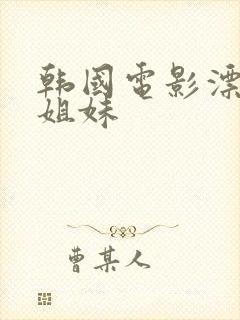 韩國電影漂
姐妹
曹某人